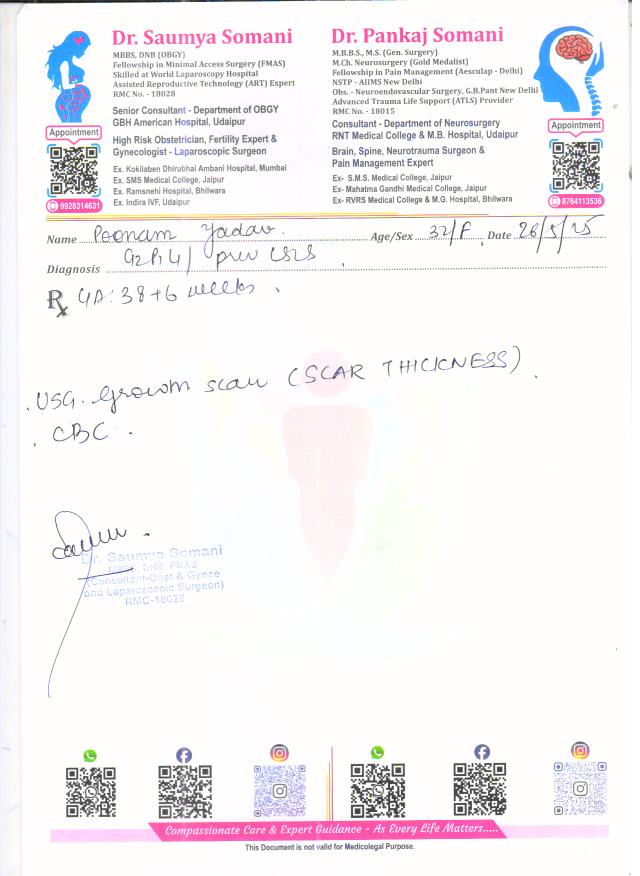 Dr. Saumya Somani
MBBS, DNB (OBGY)
Fellowship in Minimal Access Surgery (FMAS)
Skilled at World Laparoscopy Hospital
Assisted Reproductive Technology (ART) Expert
RMC No. - 18028
Senior Consultant - Department of OBGY
GBH American Hospital, Udaipur
High Risk Obstetrician, Fertility Expert &
Gynecologist - Laparoscopic Surgeon
Ex. Kokilaben Dhirubhai Ambani Hospital, Mumbai
Ex. SMS Medical College, Jaipur
Ex. Ramsnehi Hospital, Bhilwara
Ex. Indira IVF, Udaipur
Appointment
9928314631
Dr. Pankaj Somani
M.B.B.S., M.S. (Gen. Surgery)
M.Ch. Neurosurgery (Gold Medalist)
Fellowship in Pain Management (Aesculap - Delhi)
NSTP - AIIMS New Delhi
Obs. - Neuroendovascular Surgery, G.B.Pant New Delhi
Advanced Trauma Life Support (ATLS) Provider
RMC No. - 18015
Consultant - Department of Neurosurgery
RNT Medical College & M.B. Hospital, Udaipur
Brain, Spine, Neurotrauma Surgeon &
Pain Management Expert
Ex- S.M.S. Medical College, Jaipur
Ex- Mahatma Gandhi Medical College, Jaipur
Ex- RVRS Medical College & M.G. Hospital, Bhilwara
Appointment
8764113536
Name Poonam Yadav. Age/Sex 32/F Date 26/5/25
Diagnosis G2P1L1 / prev LSCS
Rx GA: 38+6 weeks.
. USG. Growth scan (SCAR THICKNESS).
. CBC.
Dr. Saumya Somani
MBBS, DNB, FMAS
(Consultant-Obst & Gynae
and Laparoscopic Surgeon)
RMC-18028
Compassionate Care & Expert Guidance - As Every Life Matters.....
This Document is not valid for Medicolegal Purpose.